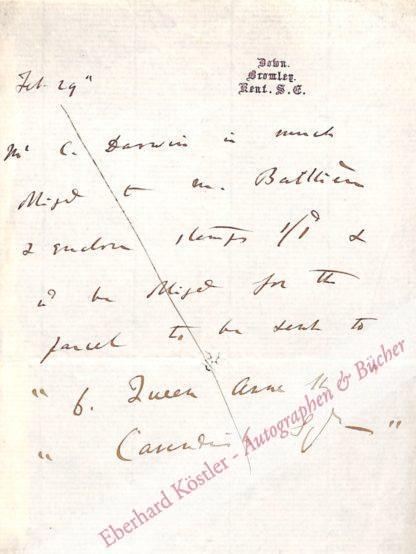 Down.
Bromley.
Kent. S. E.
Feb. 29"
Mr C. Darwin is much
obliged to M. Baillière
& encloses stamps 1/1d &
wd be obliged for the
parcel to be sent to
" 6. Queen Anne St
" Cavendish Sqre "
Eberhard Köstler - Autographen & Bücher